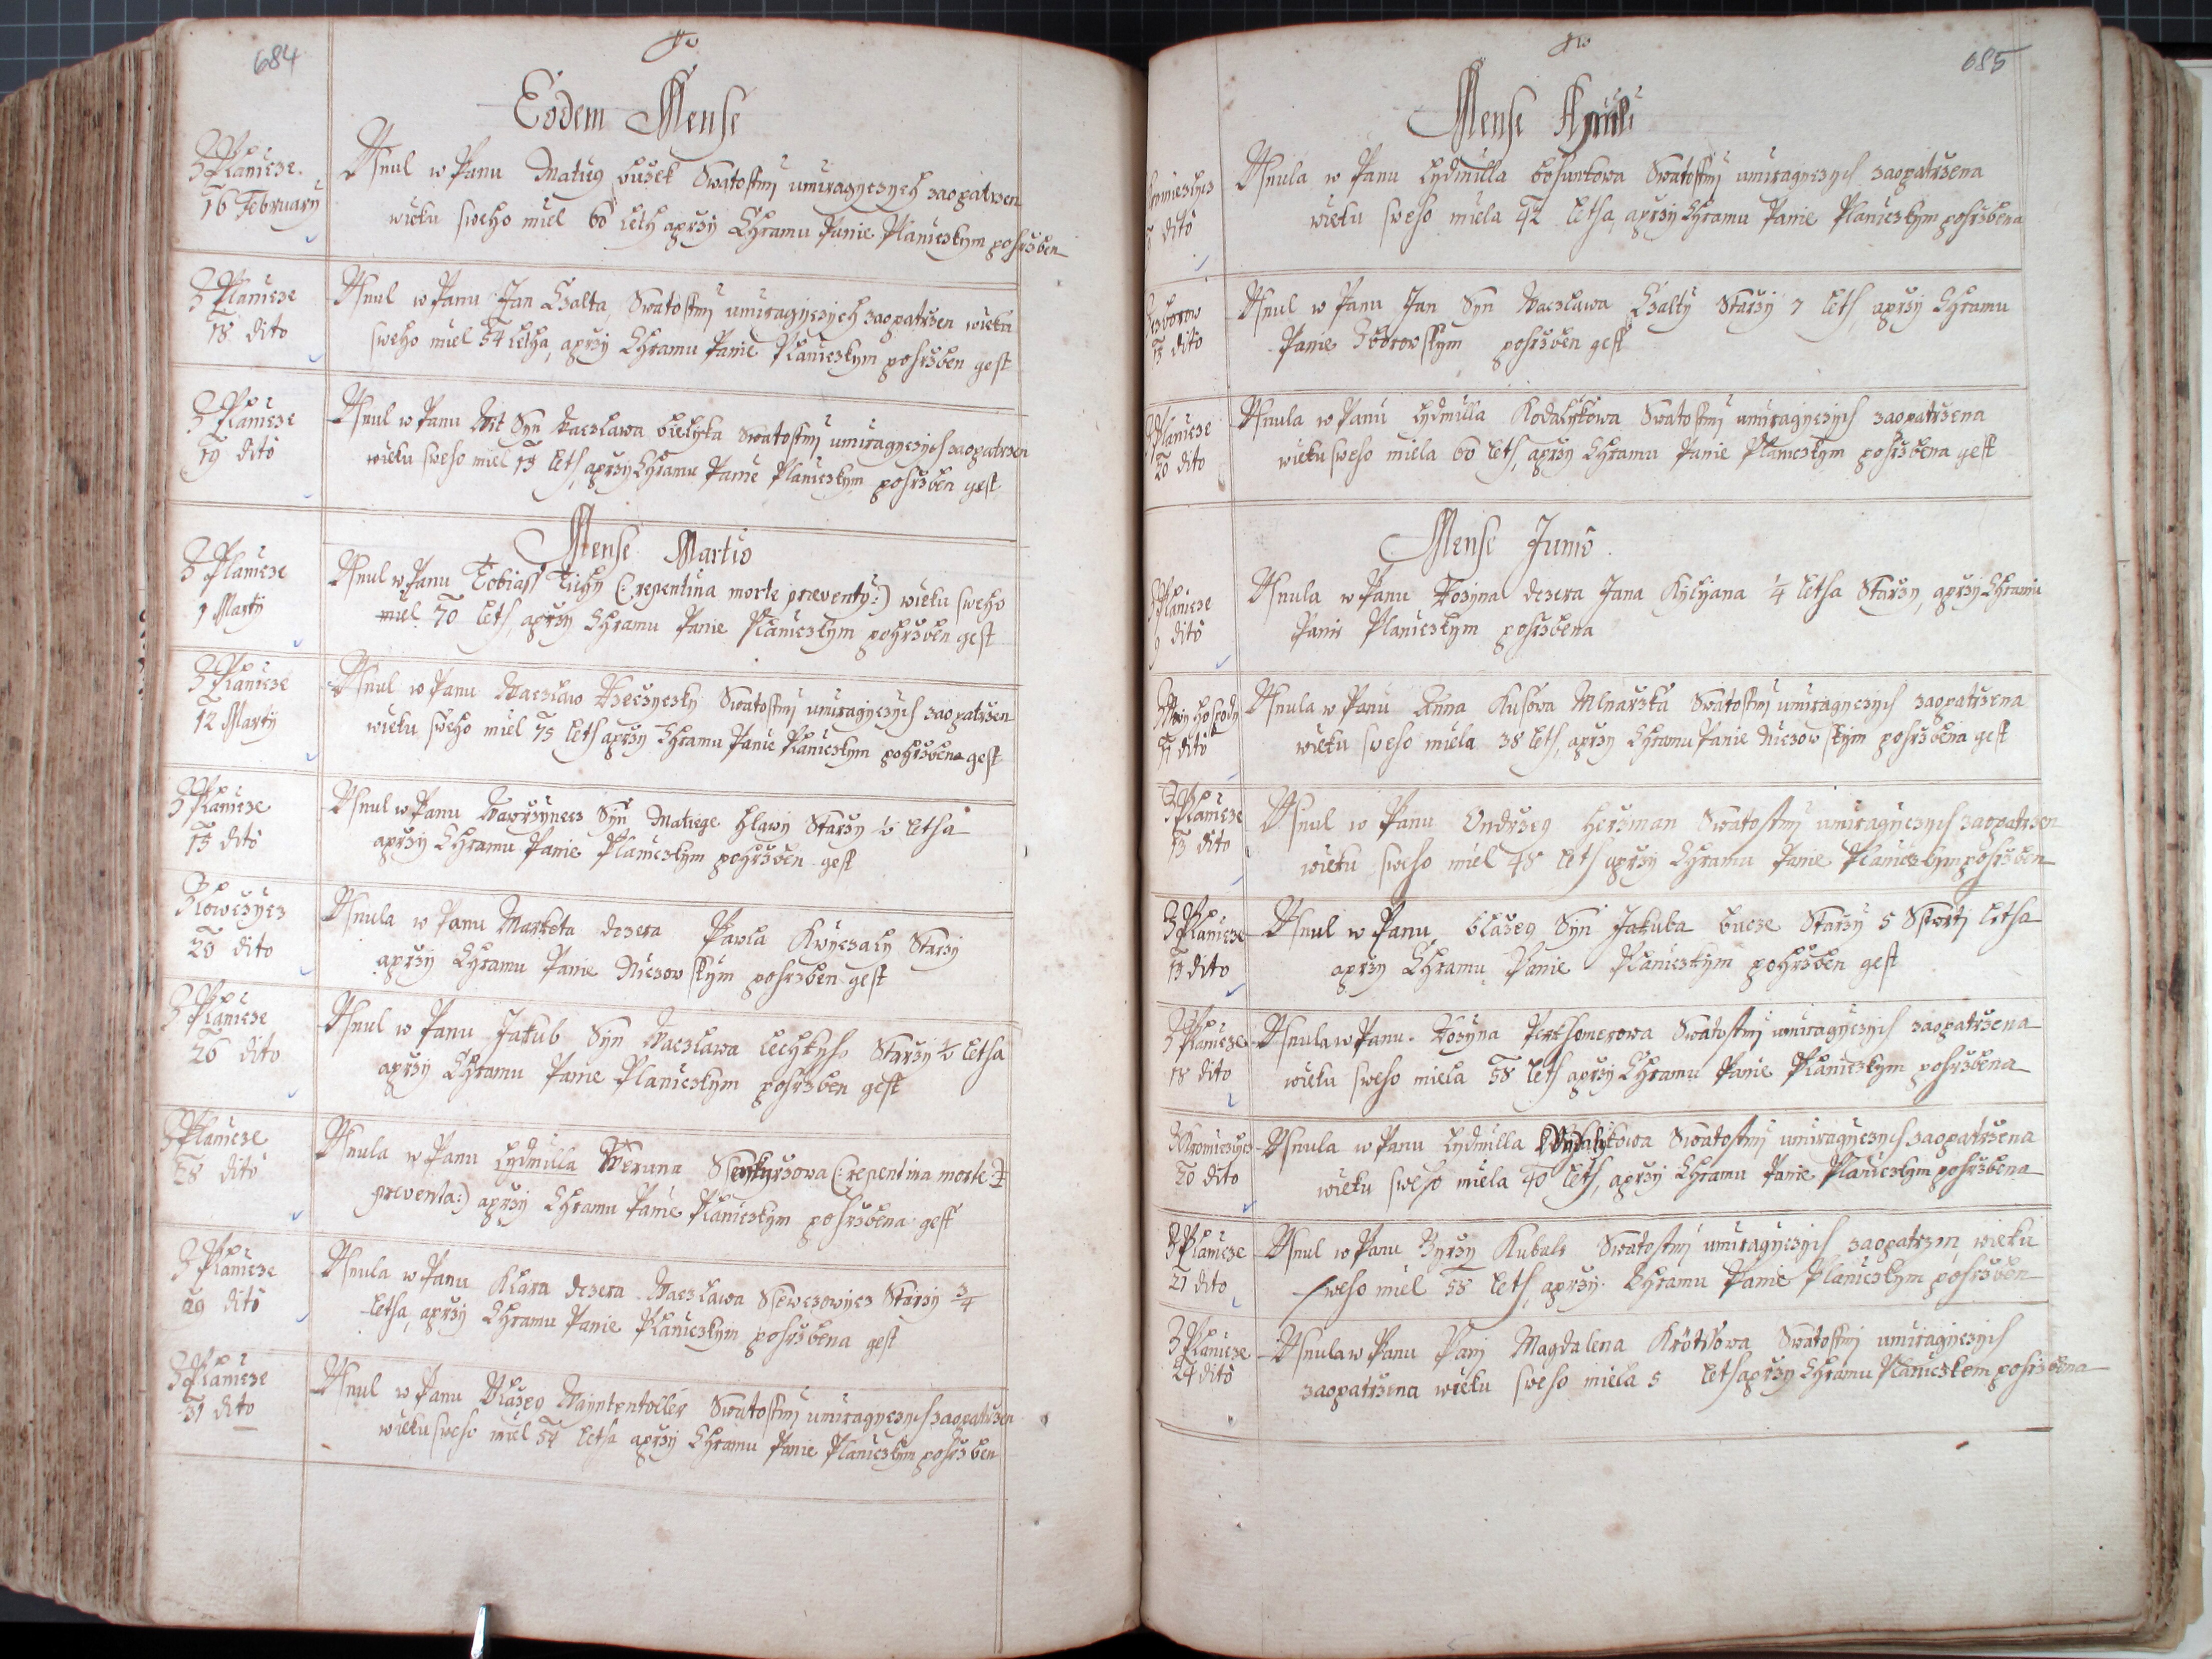 684
Eodem Mense
Z Planicze.
16 February
Usnul w Panu Matieg bužek Swatostmj umiragyczych zaopatrzen
wieku sweho miel 60 leth aprzy Chramu Panie Planiczkym pohrzben
Z Planicze
18 dito
Usnul w Panu Jan Czalta, Swatostmj umiragyczych zaopatrzen wieku
sweho miel 54 letha, aprzy Chramu Panie Planiczkym pohrzben gest
Z Planicze
19 dito
Usnul w Panu Wit Syn Waczlawa Swatostmj umiragyczych zaopatrzen
wieku sweho miel 13 leth, aprzy Chramu Panie Planiczkym pohrzben gest
Mense Martio
Z Planicze
1 Marty
Usnul w Panu Tobiass Tichy (: repentina morte præventy :) wieku sweho
miel 70 leth, aprzy Chramu Panie Planiczkym pohrzben gest
Z Planicze
12 Marty
Usnul w Panu Waczlaw Swatostmj umiragyczych zaopatrzen
wieku sweho miel 75 leth aprzy Chramu Panie Planiczkym pohrzbena gest
Z Planicze
13 dito
Usnul w Panu Wawrzynecz Syn Matiege Hlawy Starzy ½ letha
aprzy Chramu Panie Planiczkym pohrzben gest
Zlowczycz
20 dito
Usnula w Panu Marketa dczera Pawla Kwyczaly Starzj
aprzy Chramu Panie Niczowskym pohrzben gest
Z Planicze
26 dito
Usnul w Panu Jakub Syn Waczlawa Lechkyho Starzy ½ letha
aprzy Chramu Panie Planiczkym pohrzben gest
Z Planicze
28 dito
Usnula w Panu Lydmilla Weruna (: repentina morte
preventa :) aprzy Chramu Panie Planiczkym pohrzbena gest
Z Planicze
29 dito
Usnula w Panu Klara dczera Waczlawa Ssewczowycz Starzy ¾
letha, aprzy Chramu Panie Planiczkym pohrzbena gest
Z Planicze
31 dito
Usnul w Panu Blažeg Swatostmj umiragyczych zaopatrzen
wieku sweho miel 54 letha aprzy Chramu Panie Planiczkym pohrzben
685
Mense Aprili
dito
Usnula w Panu Lydmilla bohunkowa Swatostmj umiragyczych zaopatrzena
wieku sweho miela 42 letha, aprzy Chramu Panie Planiczkym pohrzbena
Zborow
13 dito
Usnul w Panu Jan Syn Waczlawa Czalty Starzy 7 leth, aprzy Chramu
Panie Zborowskym pohrzben gest
Z Planicze
20 dito
Usnula w Panu Lydmilla Kodalykowa Swatostmj umiragyczych zaopatrzena
wieku sweho miela 60 leth, aprzy Chramu Panie Planiczkym pohrzbena gest
Mense Junio
Z Planicze
9 dito
Usnula w Panu Rozyna dczera Jana Kylyana ¼ letha Starzy, aprzy Chramu
Panie Planiczkym pohrzbena
hospody
11 dito
Usnula w Panu Anna Kusova Mlnarzka Swatostmj umiragyczych zaopatrzena
wieku sweho miela 38 leth, aprzy Chramu Panie Niczowskym pohrzbena gest
Z Planicze
13 dito
Usnul w Panu Ondrzeg Herzman Swatostmj umiragyczych zaopatrzen
wieku sweho miel 48 leth aprzy Chramu Panie Planiczkym pohrzben
Z Planicze
13 dito
Usnul w Panu blažeg Syn Jakuba Starzy 5 letha
aprzy Chramu Panie Planiczkym pohrzben gest
Z Planicze
18 dito
Usnula w Panu Rozyna Swatostmj umiragyczych zaopatrzena
wieku sweho miela 58 leth aprzy Chramu Panie Planiczkym pohrzbena
Z Kromieczycz
20 dito
Usnula w Panu Lydmilla Swatostmj umiragyczych zaopatrzena
wieku sweho miela 40 leth, aprzy Chramu Panie Planiczkym pohrzbena
Z Planicze
21 dito
Usnul w Panu Gyrzy Kubals Swatostmj umiragyczych zaopatrzen, wieku
sweho miel 58 leth, aprzy Chramu Panie Planiczkym pohrzben
Z Planicze
24 dito
Usnula w Panu Panj Magdalena Swatostmj umiragyczych
zaopatrzena wieku sweho miela 5 leth aprzy Chramu Planiczkem pohrzbena